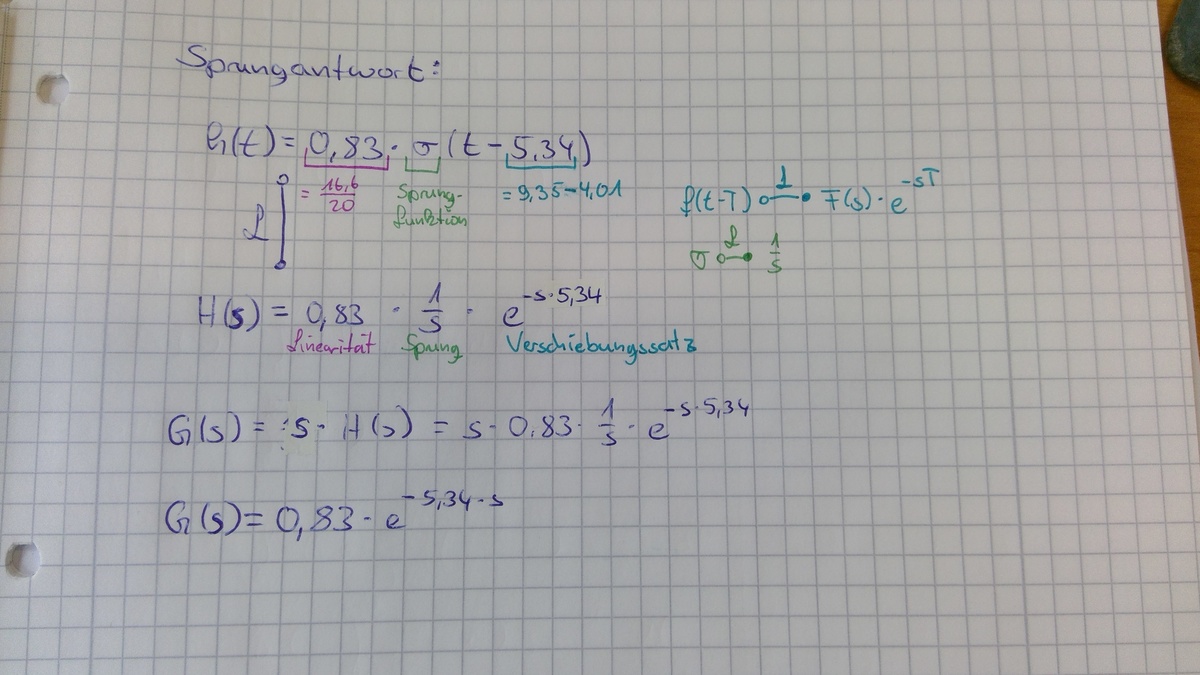 Sprungantwort:
h(t) = 0,83 · σ(t - 5,34)
= 16,6/20 Sprung- = 9,35-4,01
funktion
f(t-T) ℒ F(s) · e^-sT
σ ℒ 1/s
ℒ
H(s) = 0,83 · 1/s · e^-s·5,34
Linearität Sprung Verschiebungssatz
G(s) = s · H(s) = s · 0,83 · 1/s · e^-s·5,34
G(s) = 0,83 · e^-5,34·s